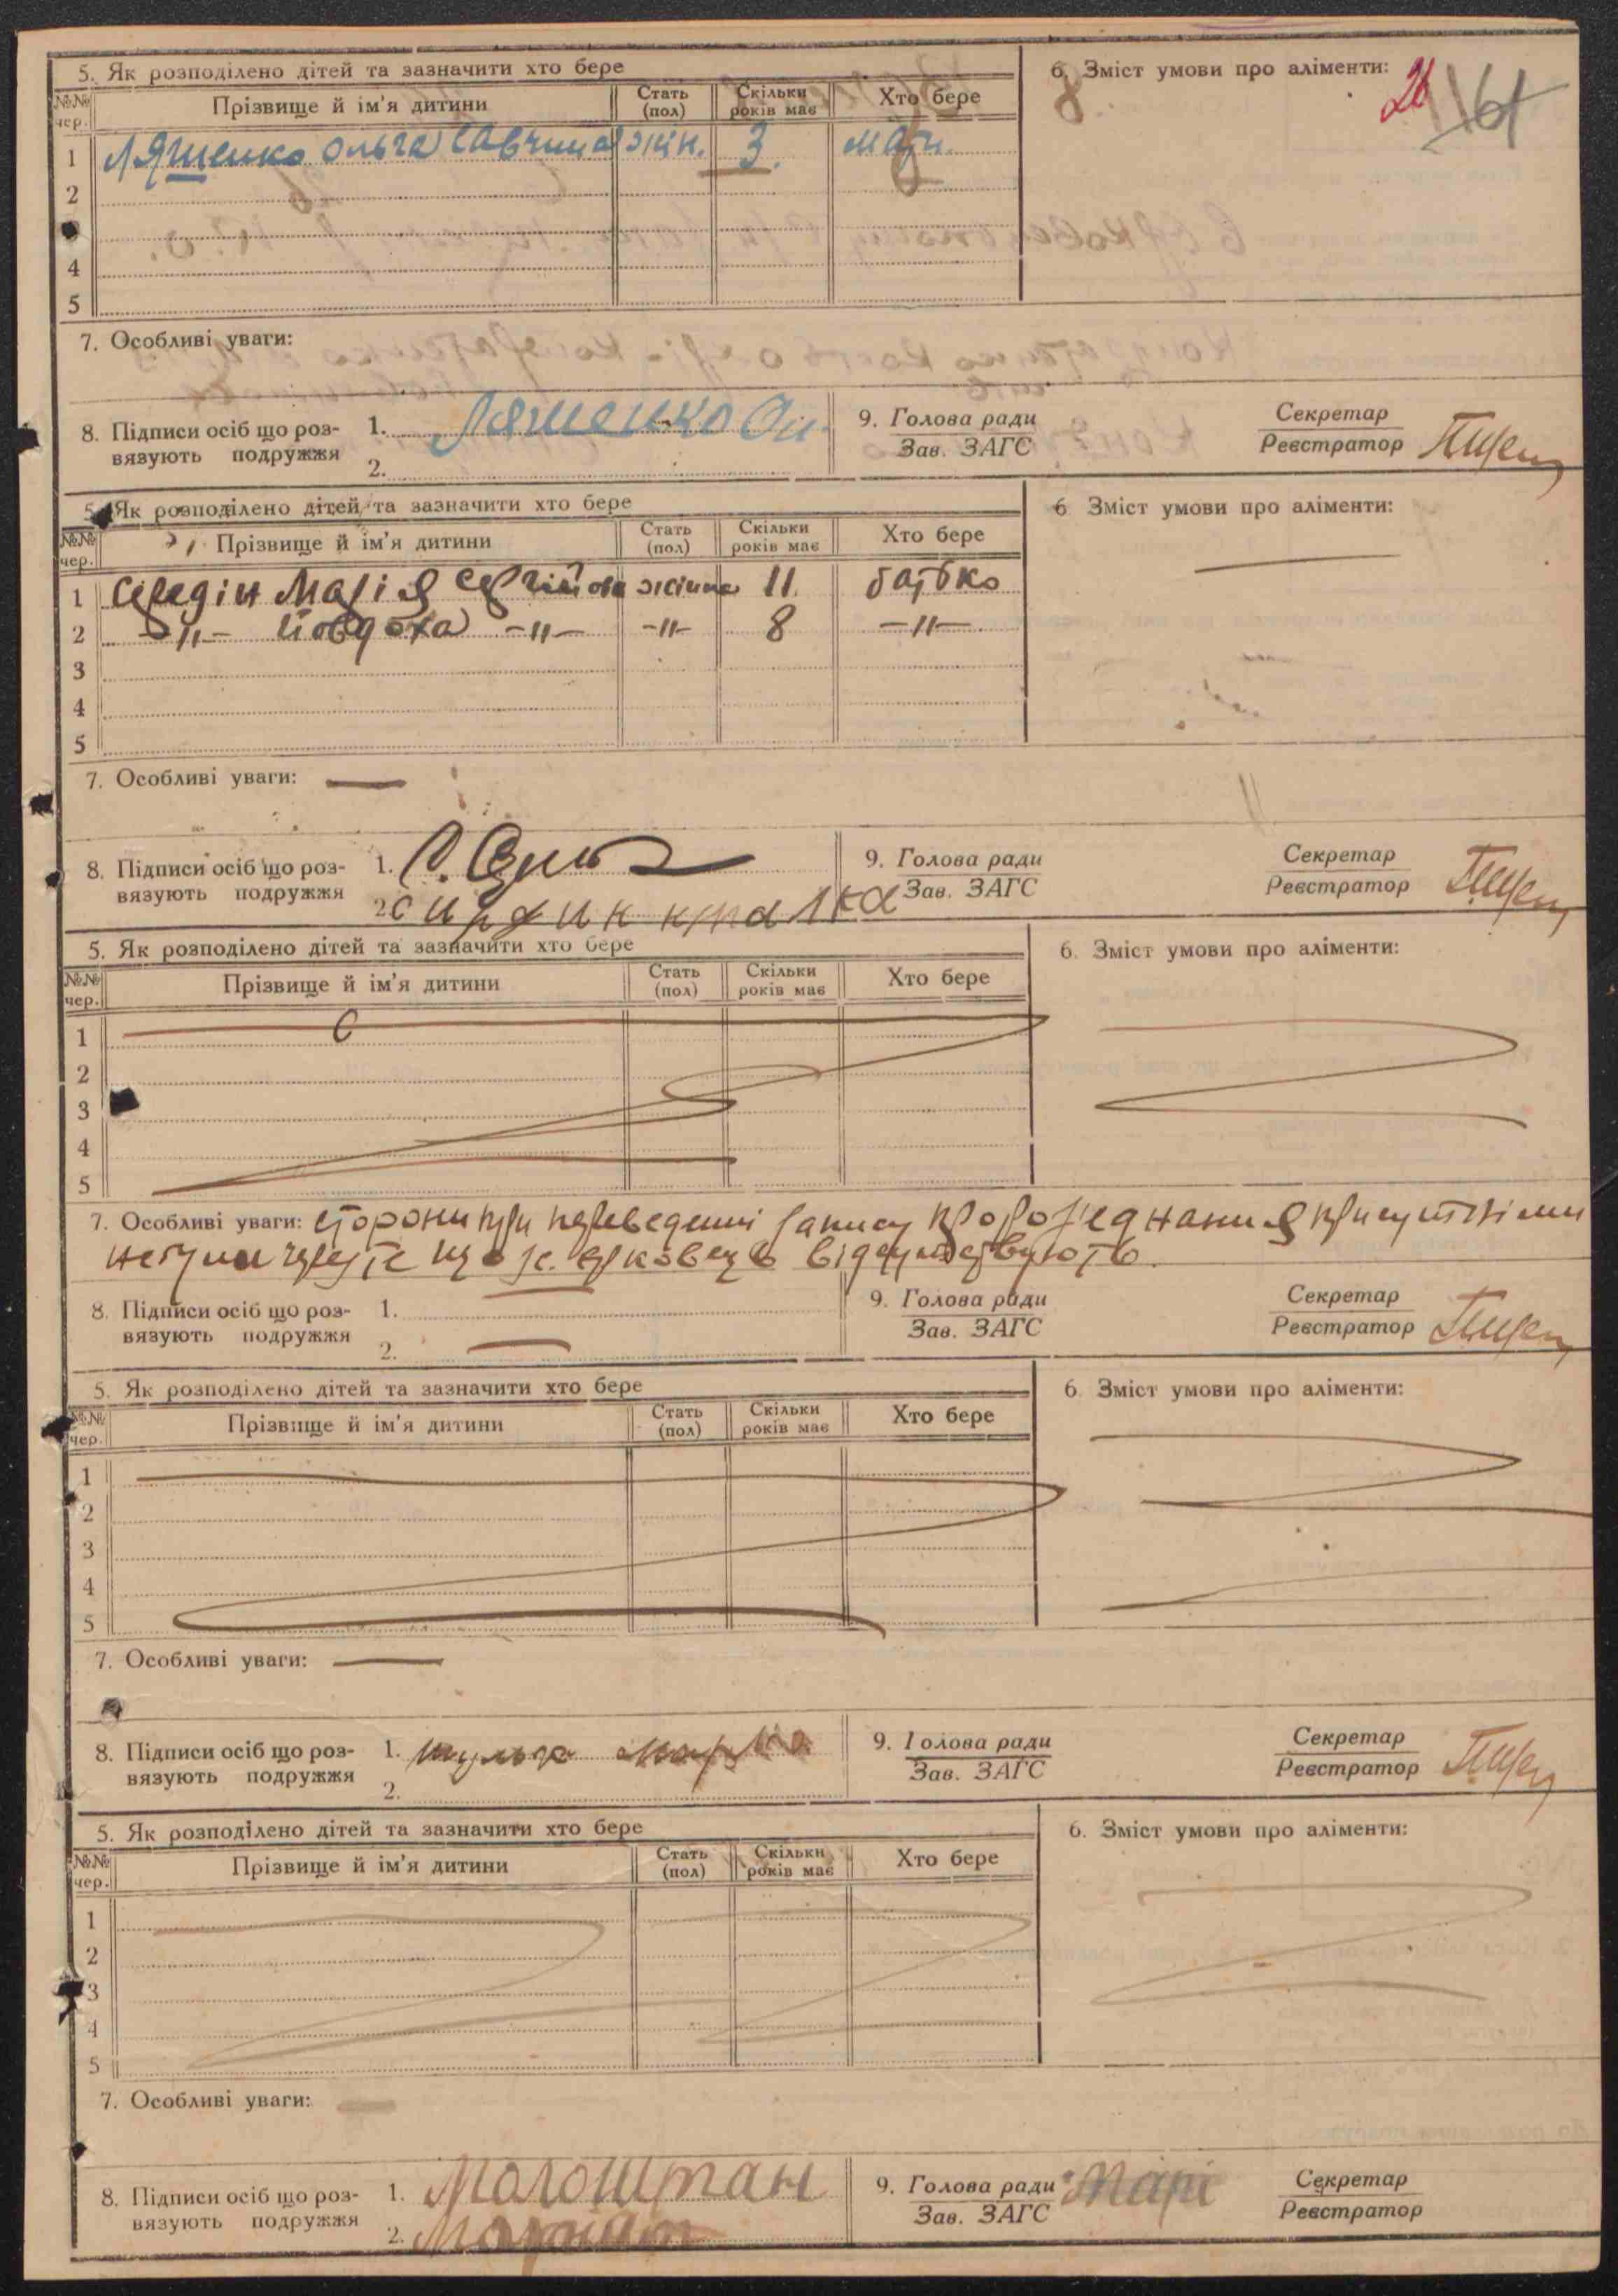 5. Як розподілено дітей та зазначити хто бере
6. Зміст умови про аліменти:
26
№№ чер. Прізвище й ім'я дитини Стать (пол) Скільки років має Хто бере
1 Ляшенко Ольга Савчина жін. 3. мати.
2
4
5
7. Особливі уваги:
8. Підписи осіб що роз-вязують подружжя 1. Ляшенко Ол.
2.
9. Голова ради
Зав. ЗАГС
Секретар
Реєстратор
5. Як розподілено дітей та зазначити хто бере
6 Зміст умови про аліменти:
№№ чер. Прізвище й ім'я дитини Стать (пол) Скільки років має Хто бере
1 Середін Марія Сергійова жіноча 11. батько
2 -"- Йовдоха -"- -"- 8 -"-
3
4
5
7. Особливі уваги: —
8. Підписи осіб що роз-вязують подружжя 1.
2.
9. Голова ради
Зав. ЗАГС
Секретар
Реєстратор
5. Як розподілено дітей та зазначити хто бере
6. Зміст умови про аліменти:
№№ чер. Прізвище й ім'я дитини Стать (пол) Скільки років має Хто бере
1
2
3
4
5
7. Особливі уваги: сторони при переведенні запису про роз'єднання присутніми
не були
8. Підписи осіб що роз-вязують подружжя 1. —
2. —
9. Голова ради
Зав. ЗАГС
Секретар
Реєстратор
5. Як розподілено дітей та зазначити хто бере
6. Зміст умови про аліменти:
№№ чер. Прізвище й ім'я дитини Стать (пол) Скільки років має Хто бере
1
2
3
4
5
7. Особливі уваги: —
8. Підписи осіб що роз-вязують подружжя 1. Шульга
2.
9. Голова ради
Зав. ЗАГС
Секретар
Реєстратор
5. Як розподілено дітей та зазначити хто бере
6. Зміст умови про аліменти:
№№ чер. Прізвище й ім'я дитини Стать (пол) Скільки років має Хто бере
1
2
3
4
5
7. Особливі уваги: —
8. Підписи осіб що роз-вязують подружжя 1. Молоштан
2.
9. Голова ради
Зав. ЗАГС
Секретар
Реєстратор